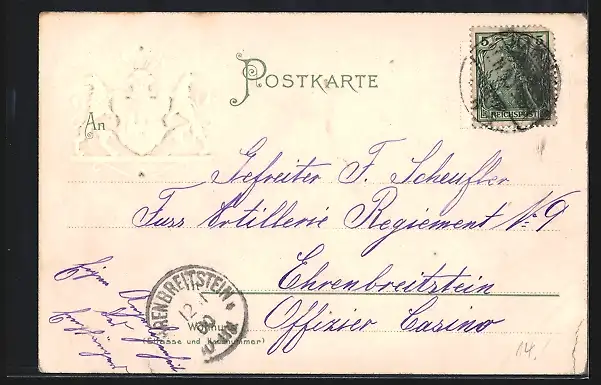 POSTKARTE
5 5
REICHSPOST
An
Gefreiter F. Scheufler
Fuss Artillerie Regiement No 9
Ehrenbreitstein
Offizier Casino
EHRENBREITSTEIN
12
Wohnung
(Strasse und Hausnummer)
14.